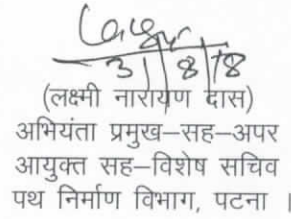 3/8/18
(लक्ष्मी नारायण दास)
अभियंता प्रमुख–सह–अपर
आयुक्त सह–विशेष सचिव
पथ निर्माण विभाग, पटना ।